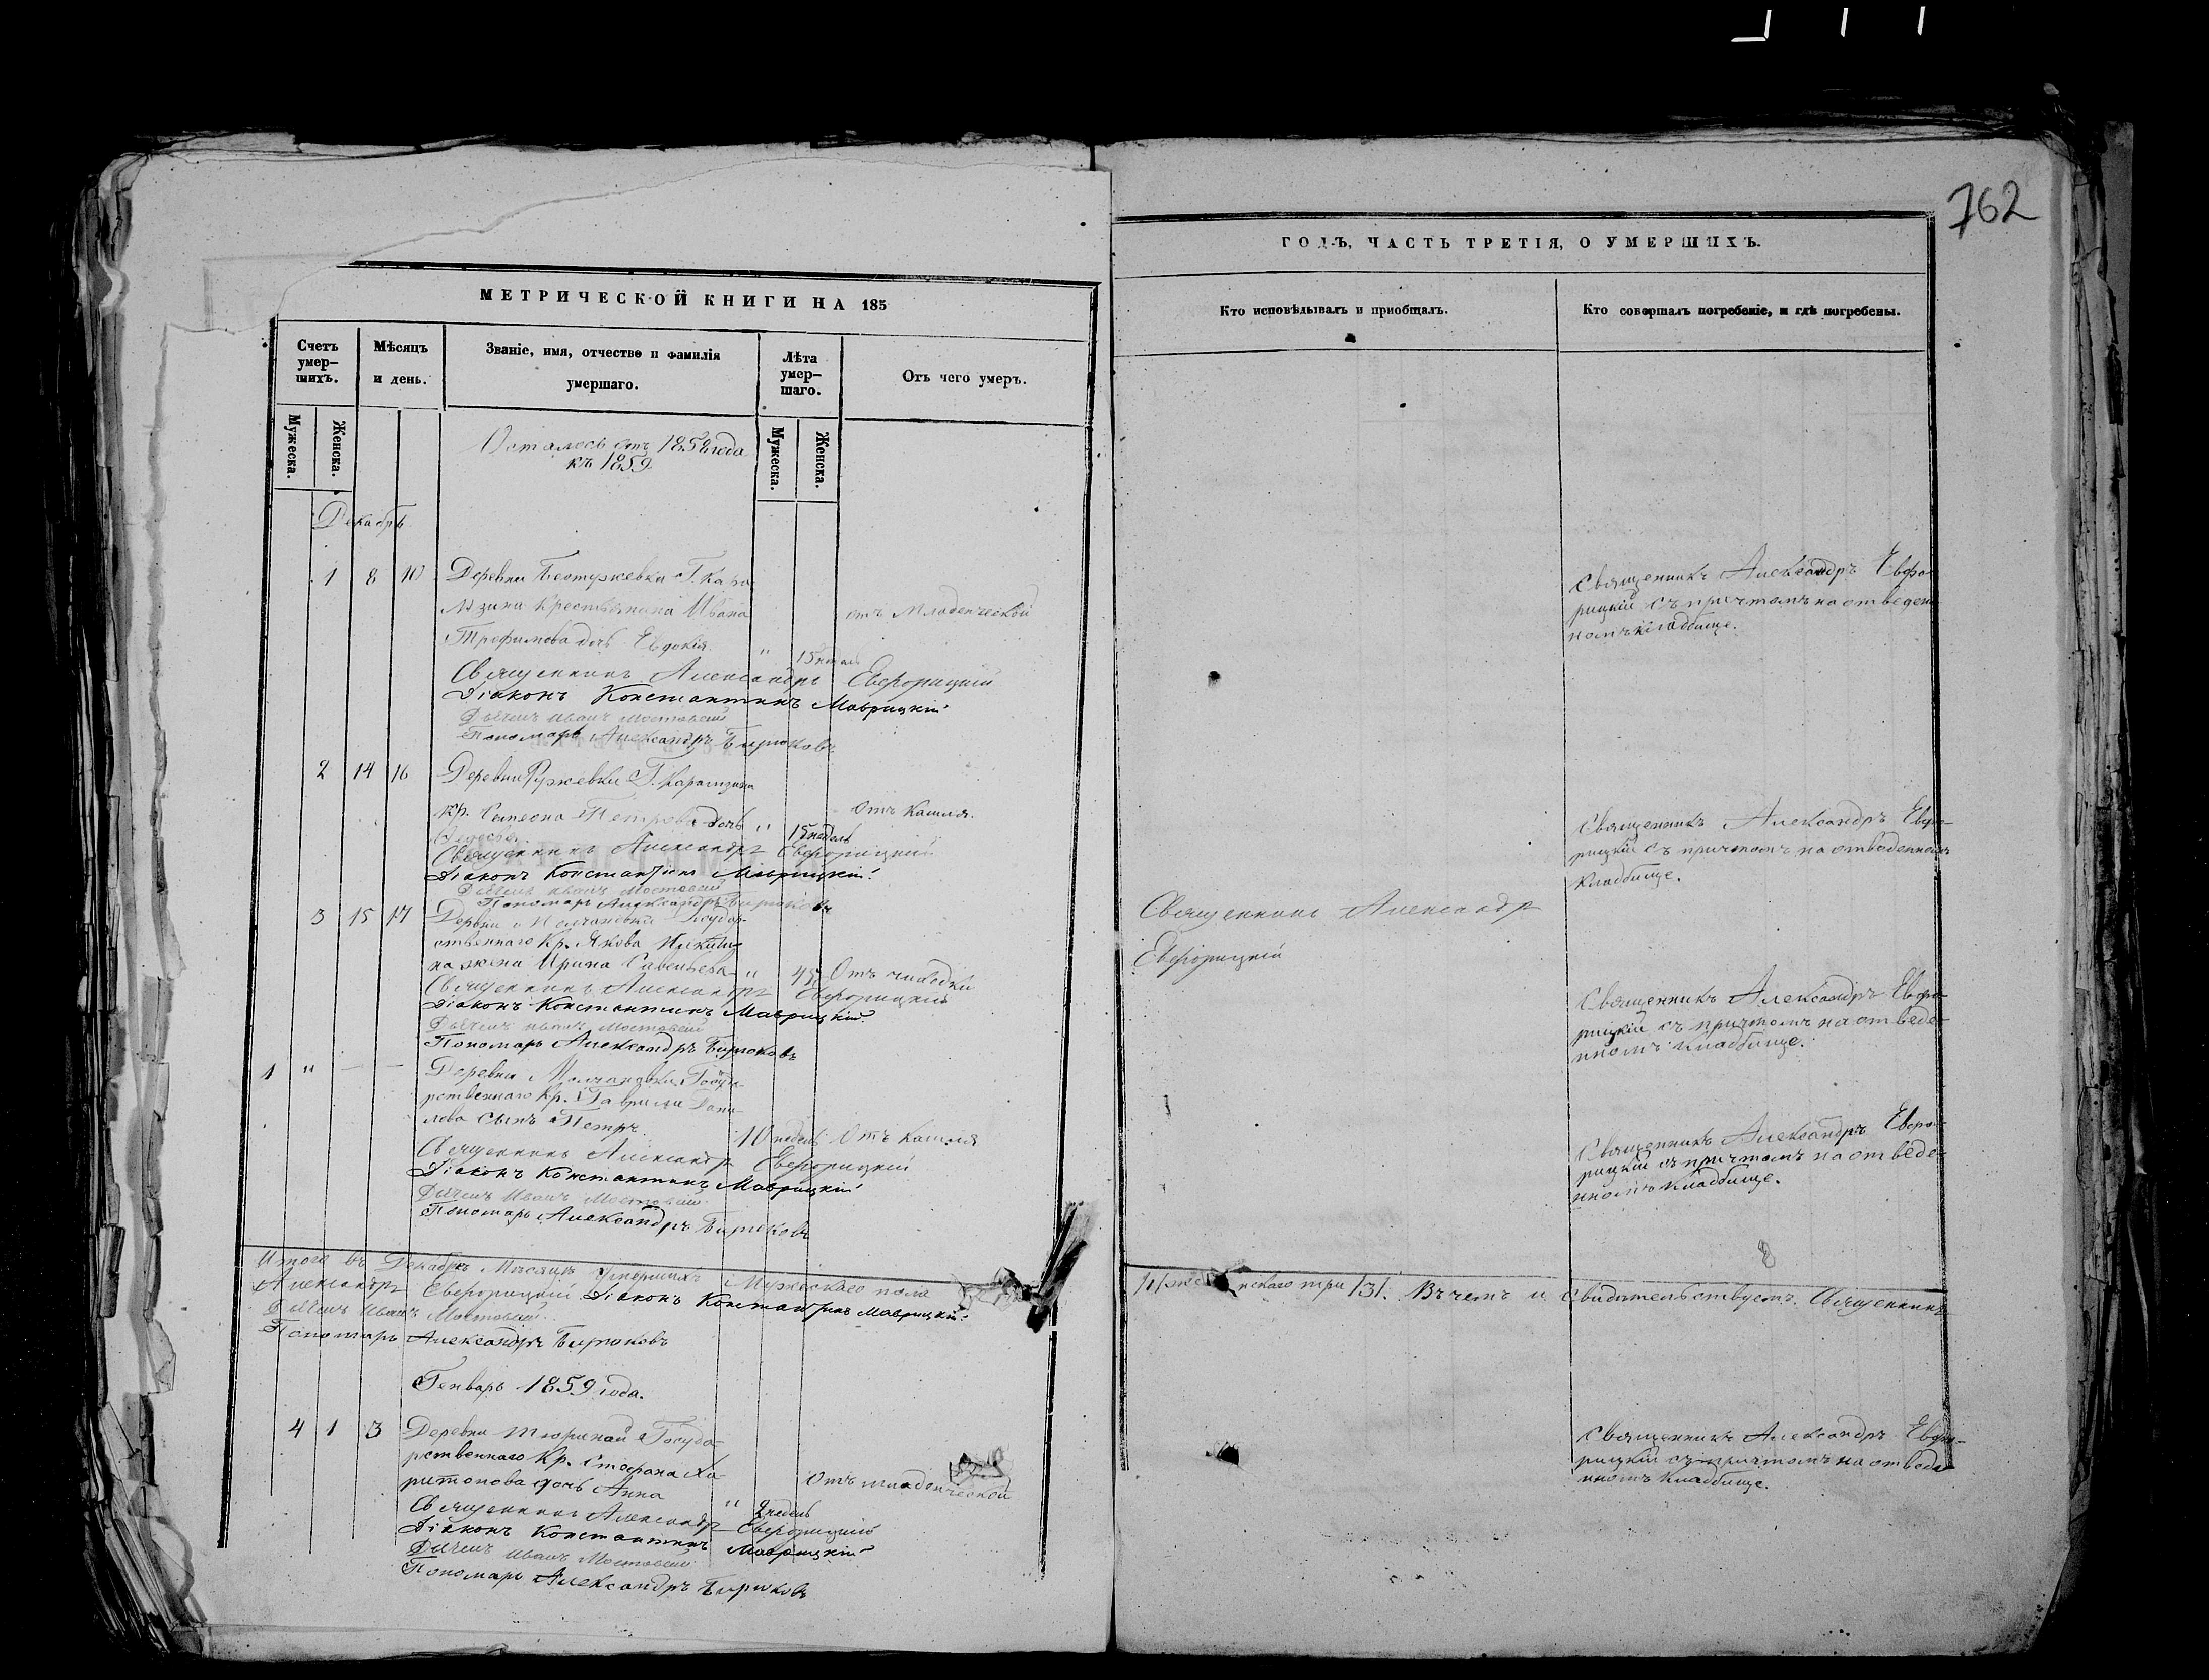 762
МЕТРИЧЕСКОЙ КНИГИ НА 185
ГОДЪ, ЧАСТЬ ТРЕТІЯ, О УМЕРШИХЪ.
Счетъ умер-шихъ.
Мѣсяцъ и день.
Званіе, имя, отчество и фамилія умершаго.
Лѣта умер-шаго.
Отъ чего умеръ.
Кто исповѣдывалъ и пріобщалъ.
Кто совершалъ погребеніе, и гдѣ погребены.
Мужеска.
Женска.
Мужеска.
Женска.
Осталось отъ 1858 года
къ 1859
Декабрь
1 8 10 Деревни Бестужевки Г. Кара-
мзина Крестьянина Ивана отъ Младенческой
Трофимова дочь Евдокія. " 15 недель
Священникъ Александръ Еверорицкій
Діаконъ Константинъ Маврицкій
Дьячекъ Иванъ Мостовскій
Пономарь Александръ Бирюковъ
Священникъ Александръ Еверо-
рицкій съ причтомъ на отведен
номъ кладбище.
2 14 16 Деревни Ружевки Г. Карамзина
Кр. Семеона Петрова дочь " 15 недель Отъ Кашля.
Священникъ Александръ Еверорицкій
Діаконъ Константинъ Маврицкій
Дьячекъ Иванъ Мостовскій
Пономарь Александръ Бирюковъ
Священникъ Александръ Евро-
рицкій съ причтомъ на отведенномъ
Кладбище.
3 15 17 Деревни Молчановки Государ-
ственнаго Кр. Якова Никити-
на жена Ирина Савельева " 45 Отъ чихотки
Священникъ Александръ Еверорицкій
Діаконъ Константинъ Маврицкій
Дьячекъ Иванъ Мостовскій
Пономарь Александръ Бирюковъ
Священникъ Александръ
Еверорицкій
Священникъ Александръ Еверо-
рицкій съ причтомъ на отведе-
нномъ Кладбище.
1 " — — Деревни Молчановки Госуда-
рственнаго Кр. Гаврила Дани-
лова сынъ Петръ. 10 недель Отъ Кашля
Священникъ Александръ Еверорицкій
Діаконъ Константинъ Маврицкій
Дьячекъ Иванъ Мостовскій
Пономарь Александръ Бирюковъ
Священникъ Александръ Еверо-
рицкій съ причтомъ на отведе-
нномъ Кладбище.
Итого въ Декабрѣ Мѣсяцѣ Умершихъ Мужескаго пола
нскаго три /3/. Въ чемъ и свидѣтельствуетъ. Священникъ
Александръ Еверорицкій Діаконъ Константинъ Маврицкій
Дьячекъ Иванъ Мостовскій
Пономарь Александръ Бирюковъ
Генварь 1859 года.
4 1 3 Деревни Тюриной Госуда-
рственнаго Кр. Стефана Ха-
ритонова дочь Анна " 2 недель Отъ младенческой
Священникъ Александръ Еверорицкій
Діаконъ Константинъ Маврицкій
Дьячекъ Иванъ Мостовскій
Пономарь Александръ Бирюковъ
Священникъ Александръ Еверо-
рицкій съ причтомъ на отведе
нномъ Кладбище.